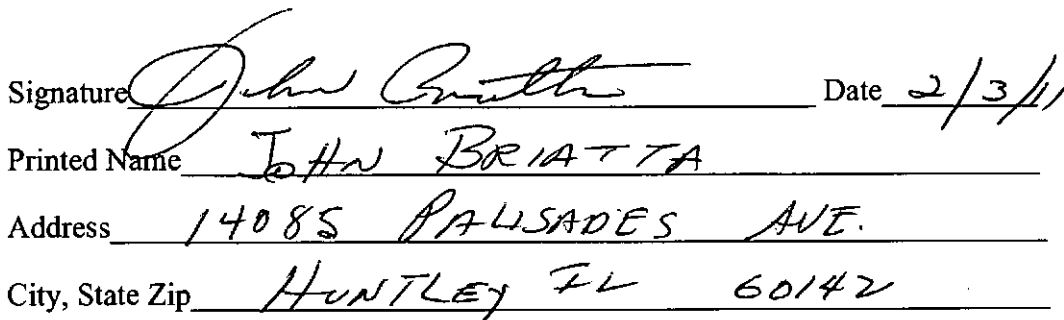 Signature John Briatta Date 2/3/11
Printed Name JOHN BRIATTA
Address 14085 PALISADES AVE.
City, State Zip HUNTLEY IL 60142